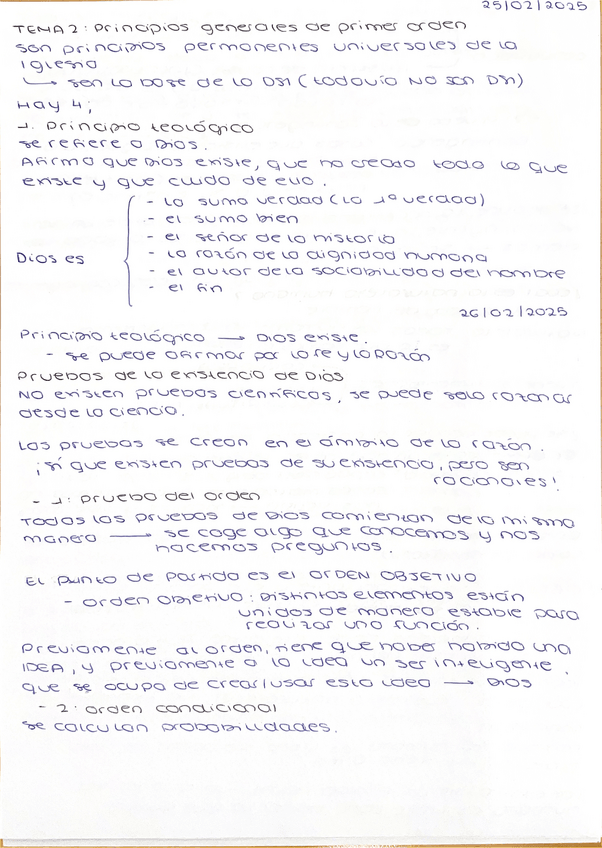 25/02/2025
TEMA 2: Principios generales de primer orden
son principios permanentes universales de la
Iglesia
↳ sen la base de la DSI (todavía NO son DSI)
Hay 4;
1. Principio teológico
se refiere a Dios.
Afirma que Dios existe, que ha creado todo lo que
existe y que cuida de ello.
Dios es
- la suma verdad (la 1º verdad)
- el sumo bien
- el señor de la historia
- la razón de la dignidad humana
- el autor de la sociabilidad del hombre
- el fin
26/02/2025
Principio teológico → Dios existe.
- se puede afirmar por la fe y la razón
Pruebas de la existencia de Dios
NO existen pruebas científicas, se puede solo razonar
desde la ciencia.
Las pruebas se crean en el ámbito de la razón.
¡sí que existen pruebas de su existencia, pero sen
racionales!
- 1: prueba del orden
Todas las pruebas de Dios comienzan de la misma
manera → se coge algo que conocemos y nos
hacemos preguntas.
EL punto de partida es el ORDEN OBJETIVO
- orden objetivo: Distintos elementos están
unidos de manera estable para
realizar una función.
Previamente al orden, tiene que haber habido una
IDEA, y previamente a la idea un ser inteligente,
que se ocupa de crear/usar esta idea → Dios
- 2: orden condicional
se calculan probabilidades.